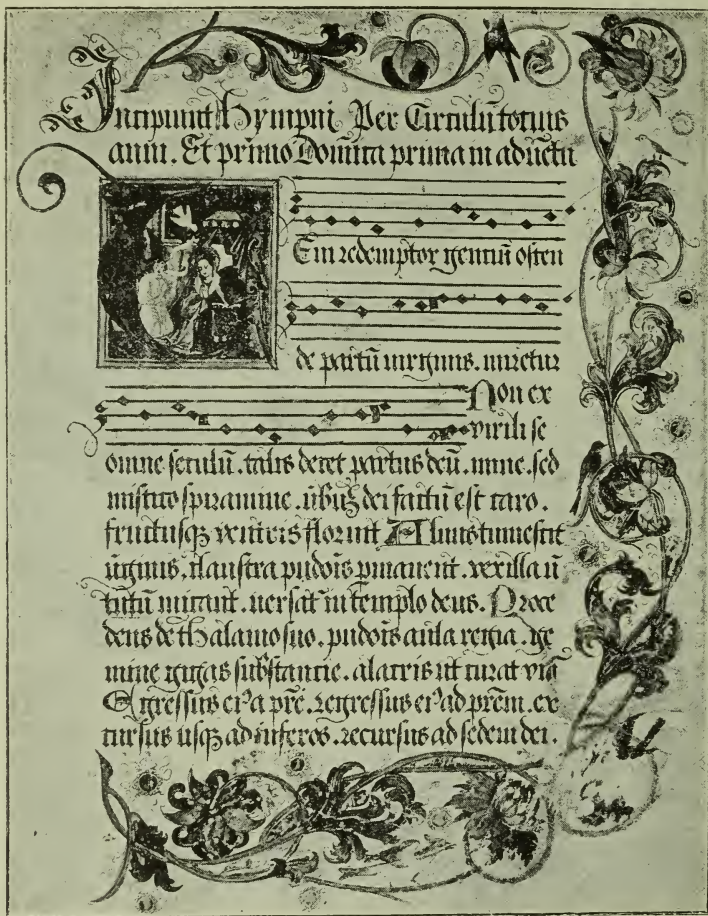 Incipiunt hympni Per Circulū totius
anni. Et primo Domīca prima in aduētu
Eni redemptor gentiū osten
de partū uirginis. miretur
Non ex
virili se
omne seculū. talis decet partus deū. mine. sed
mistico spiramine. ūbuʒ dei factū est caro.
fructusqʒ ventris floruit Aluus tumescit
ūginis. claustra pudoīs pmanent. vexilla ū
tutū micant. uersāt in templo deus. Proce
dens de thalamo suo. pudoīs aula regia. ge
mine gigas substantie. alacris ut currat viā
Egressus eiꝰ a prē. regressus eiꝰ ad prēm. ex
cursus usqʒ ad inferos. recursus ad sedem dei.